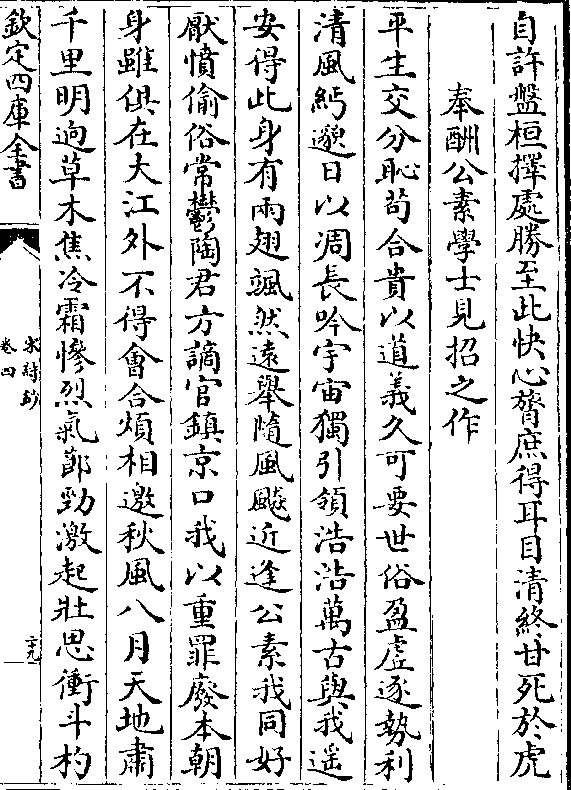 自許盤桓擇處勝至此快心膂庶得耳目清終甘死於虎
奉酬公素學士見招之作
平生交分恥苟合貴以道義久可要世俗盈虛逐勢利
清風紗邈日以凋長吟宇宙獨引領浩浩萬古與我遥
安得此身有兩翅颯然遠舉隨風飈近逢公素我同好
厭憤偷俗常鬱陶君方謫官鎮京口我以重罪廢本朝
身雖俱在大江外不得會合煩相邀秋風八月天地肅
千里明逈草木焦冷霜慘烈氣節勁激起壯思衝斗杓
欽定四庫全書
宋詩鈔
卷四
二十九